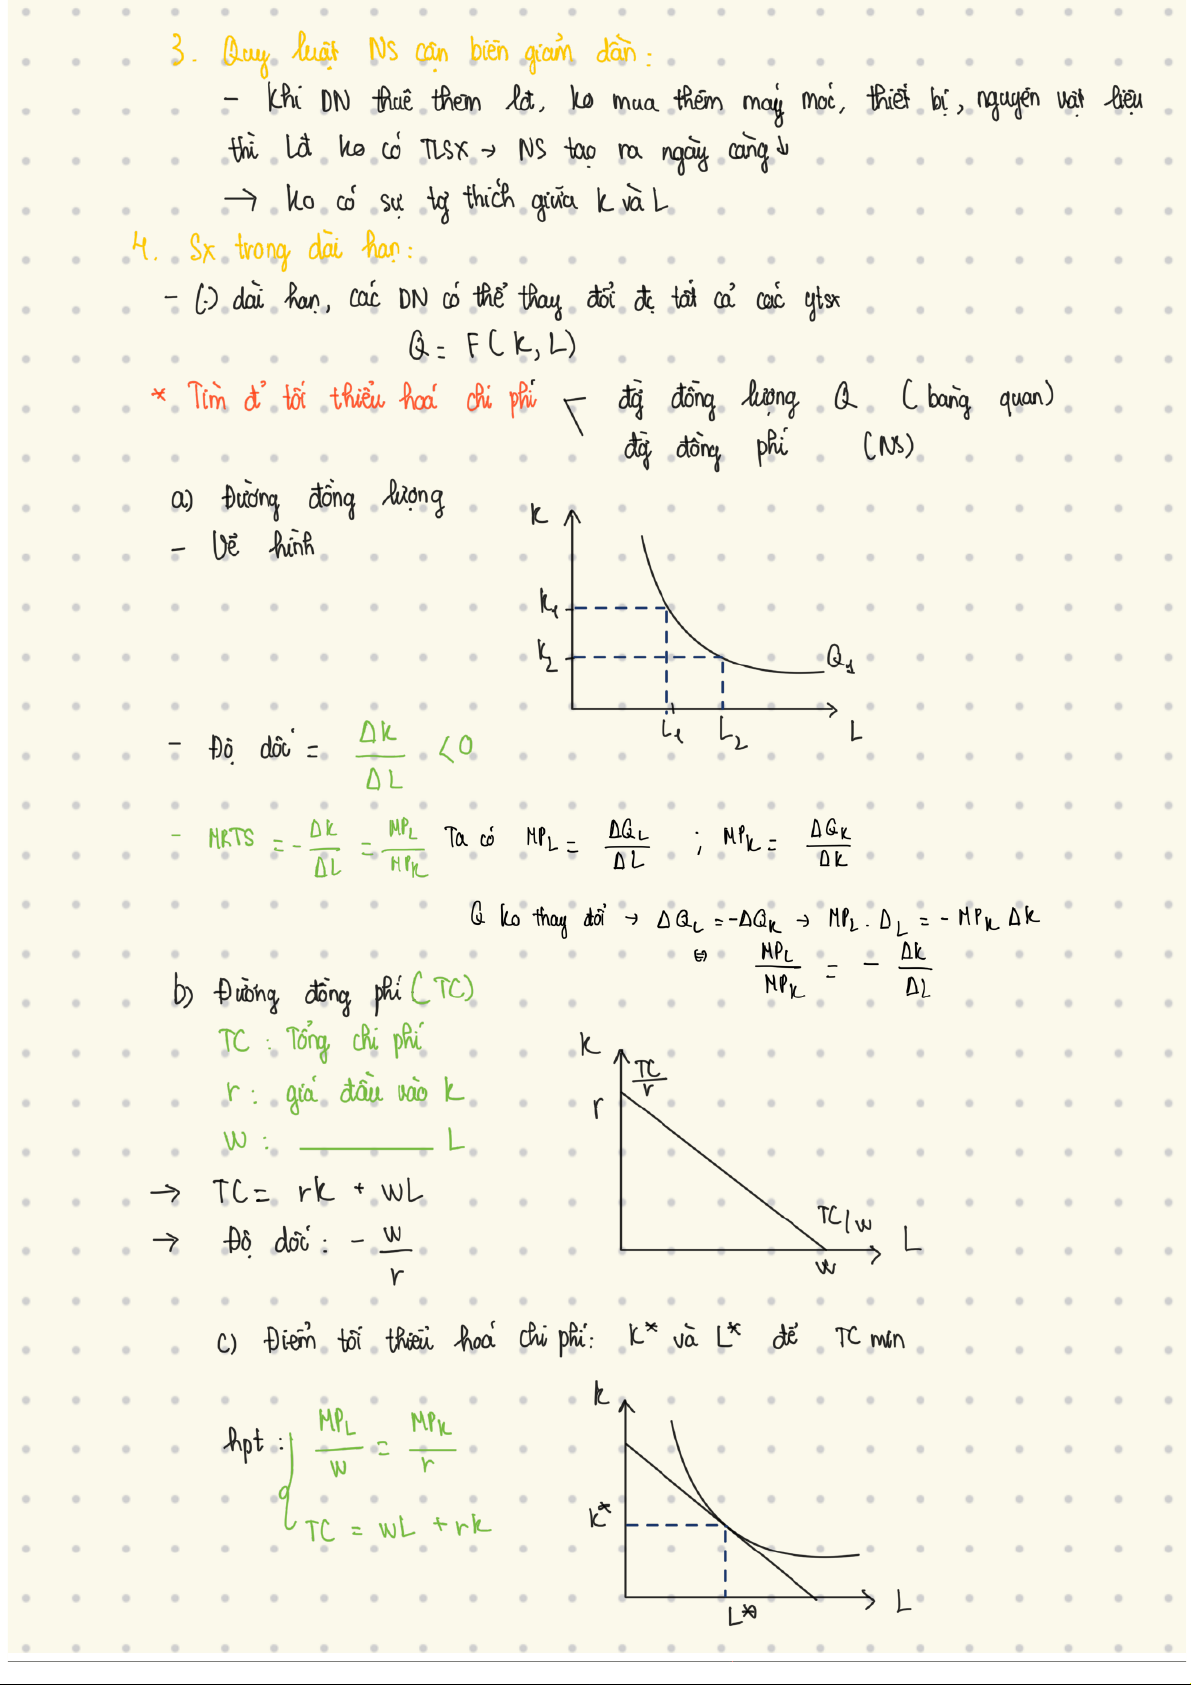 3. Quy luật NS cận biên giảm dần:
- Khi DN thuê thêm lđ, ko mua thêm máy móc, thiết bị, nguyên vật liệu
thì Lđ ko có TLSX → NS tạo ra ngày càng ↓
→ Ko có sự tg thích giữa K và L
4. Sx trong dài hạn:
- (.) dài hạn, các DN có thể thay đổi đc tất cả các ytsx
Q = F(K, L)
* Tìm đ' tối thiểu hoá chi phí
đg đồng lượng Q (bàng quan)
đg đồng phí (NS)
a) Đường đồng lượng
- Vẽ hình
K
K1
K2
Q1
L1 L2 L
- Độ dốc = ΔK/ΔL < 0
- MRTS = -ΔK/ΔL = MPL/MPK Ta có MPL = ΔQL/ΔL ; MPK = ΔQK/ΔK
Q ko thay đổi → ΔQL = -ΔQK → MPL . ΔL = - MPK ΔK
⇔ MPL/MPK = - ΔK/ΔL
b) Đường đồng phí (TC)
TC : Tổng chi phí
r : giá đầu vào K
w : ______ L
→ TC = rK + wL
→ Độ dốc : - w/r
K
TC/r
r
TC/w
w
L
c) Điểm tối thiểu hoá chi phí: K* và L* để TC min
hpt :
MPL/w = MPK/r
TC = wL + rK
K
K*
L*
L